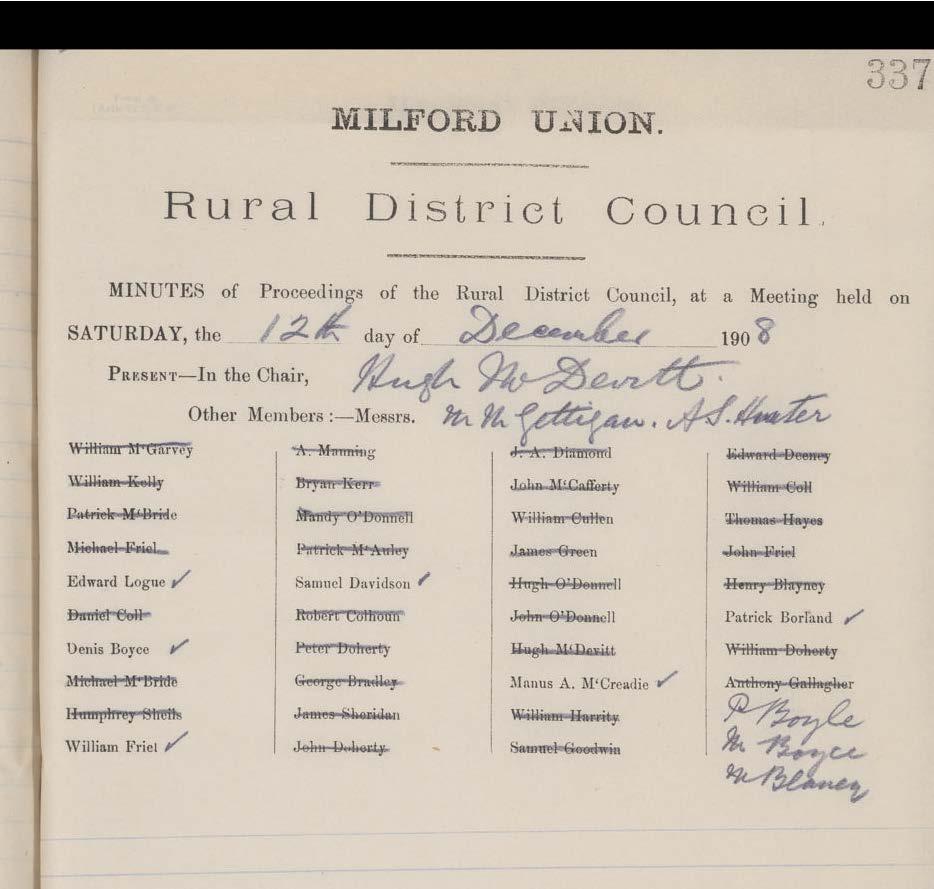 337
MILFORD UNION.
Rural District Council.
MINUTES of Proceedings of the Rural District Council, at a Meeting held on
SATURDAY, the 12th day of December 1908
PRESENT—In the Chair, Hugh McDevitt.
Other Members:—Messrs. M McGettigan. A S. Hunter
William M'Garvey
William Kelly
Patrick M'Bride
Michael Friel
Edward Logue ✓
Daniel Coll
Denis Boyce ✓
Michael M'Bride
Humphrey Sheils
William Friel ✓
A. Manning
Bryan Kerr
Mandy O'Donnell
Patrick M'Auley
Samuel Davidson ✓
Robert Colhoun
Peter Doherty
George Bradley
James Sheridan
John Doherty
J. A. Diamond
John M'Cafferty
William Cullen
James Green
Hugh O'Donnell
John O'Donnell
Hugh M'Devitt
Manus A. M'Creadie ✓
William Harrity
Samuel Goodwin
Edward Deeney
William Coll
Thomas Hayes
John Friel
Henry Blayney
Patrick Borland ✓
William Doherty
Anthony Gallagher
P Boyle
M Boyce
M Blaney